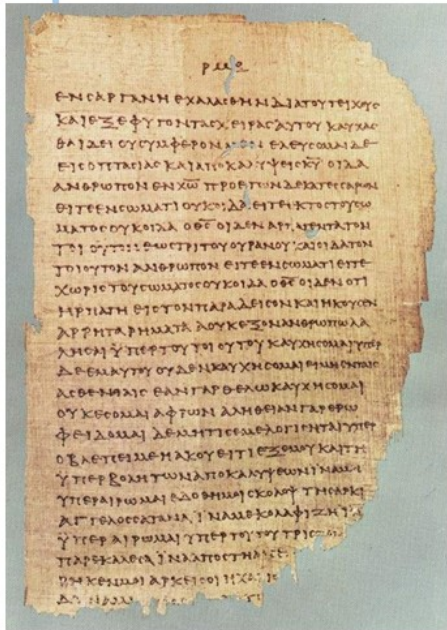 ΕΝϹΑΡΓΑΝΗΕΧΑΛΑϹΘΗΝΔΙΑΤΟΥΤΕΙΧΟΥϹ
ΚΑΙΕΞΕΦΥΓΟΝΤΑϹΧΕΙΡΑϹΑΥΤΟΥΚΑΥΧΑϹ
ΘΑΙΔΕΙΟΥϹΥΜΦΕΡΟΝ ΕΛΕΥϹΟΜΑΙΔΕ
ΕΙϹΟΠΤΑϹΙΑϹΚΑΙΑΠΟΚΑΛΥΨΕΙϹΚ̅Υ̅ΟΙΔΑ
ΑΝΘΡΩΠΟΝΕΝΧ̅Ω̅ΠΡΟΕΤΩΝΔΕΚΑΤΕϹϹΑΡΩΝ
ΕΙΤΕΕΝϹΩΜΑΤΙΟΥΚΟΙΔΑΕΙΤΕΕΚΤΟϹΤΟΥϹΩ
ΜΑΤΟϹΟΥΚΟΙΔΑΟΘ̅Ϲ̅ΟΙΔΕΝΑΡΠΑΓΕΝΤΑΤΟΝ
ΤΟΙΟΥΤΟΝΕΩϹΤΡΙΤΟΥΟΥΡΑΝΟΥΚΑΙΟΙΔΑΤΟΝ
ΤΟΙΟΥΤΟΝΑΝΘΡΩΠΟΝΕΙΤΕΕΝϹΩΜΑΤΙΕΙΤΕ
ΧΩΡΙϹΤΟΥϹΩΜΑΤΟϹΟΥΚΟΙΔΑΟΘ̅Ϲ̅ΟΙΔΕΝΟΤΙ
ΗΡΠΑΓΗΕΙϹΤΟΝΠΑΡΑΔΕΙϹΟΝΚΑΙΗΚΟΥϹΕΝ
ΑΡΡΗΤΑΡΗΜΑΤΑΑΟΥΚΕΞΟΝΑΝΘΡΩΠΩΛΑ
ΛΗϹΑΙΫΠΕΡΤΟΥΤΟΙΟΥΤΟΥΚΑΥΧΗϹΟΜΑΙΥΠΕΡ
ΔΕΕΜΑΥΤΟΥΟΥΔΕΝΚΑΥΧΗϹΟΜΑΙΕΙΜΗΕΝΤΑΙϹ
ΑϹΘΕΝΕΙΑΙϹΕΑΝΓΑΡΘΕΛΩΚΑΥΧΗϹΟΜΑΙ
ΟΥΚΕϹΟΜΑΙΑΦΡΩΝΑΛΗΘΕΙΑΝΓΑΡΕΡΩ
ΦΕΙΔΟΜΑΙΔΕΜΗΤΙϹΕΜΕΛΟΓΙϹΗΤΑΙΥΠΕΡ
ΟΒΛΕΠΕΙΜΕΗΑΚΟΥΕΙΤΙΕΞΕΜΟΥΚΑΙΤΗ
ΫΠΕΡΒΟΛΗΤΩΝΑΠΟΚΑΛΥΨΕΩΝΪΝΑΜΗ
ΥΠΕΡΑΙΡΩΜΑΙΕΔΟΘΗΜΟΙϹΚΟΛΟΨΤΗϹΑΡΚΙ
ΑΓΓΕΛΟϹϹΑΤΑΝΑΪΝΑΜΕΚΟΛΑΦΙΖΗ
ΫΠΕΡΑΙΡΩΜΑΙΥΠΕΡΤΟΥΤΟΥΤΡΙϹ
ΠΑΡΕΚΑΛΕϹΑΪΝΑΑΠΟϹΤΗ
ΡΗΚΕΝΜΟΙΑΡΚΕΙϹΟΙΗΧΑΡΙϹ